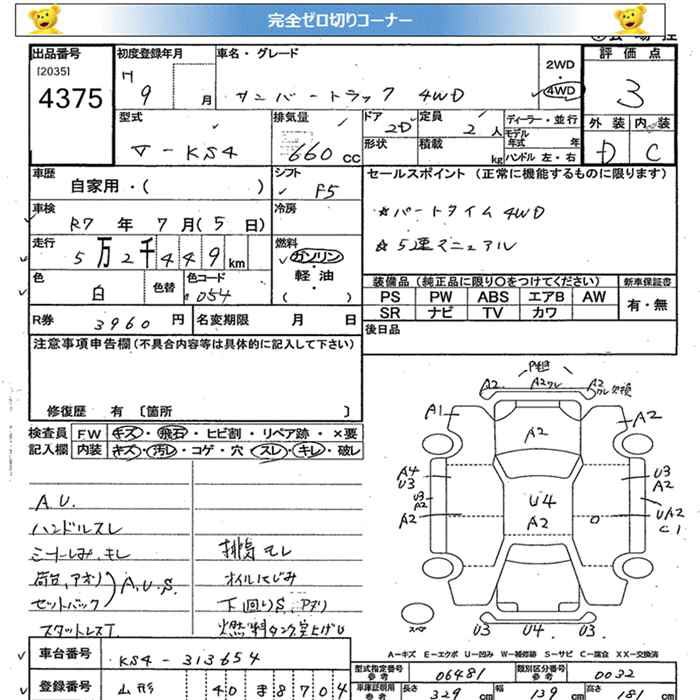 完全ゼロ切りコーナー
出品番号 初度登録年月 車名・グレード 2WD・4WD 評価点
[2035]
4375 H 9 月 サンバートラック 4WD 3
型式 排気量 ドア 2D 定員 2人 ディーラー・並行 外装 内装
V-KS4 660 cc 形状 積載 kg モデル年式 年式 ハンドル 左・右 D C
車歴 自家用・( ) シフト F5 セールスポイント (正常に機能するものに限ります)
車検 R7 年 7 月(5 日) 冷房 ☆パートタイム4WD
走行 5万2千449km 燃料 ガソリン・軽油( ) ☆5速マニュアル
色 白 色替 色コード 054 装備品 (純正品に限り〇をつけてください) 新車保証書
PS PW ABS エアB AW 有・無
SR ナビ TV カワ
R券 3960 円 名変期限 月 日 後日品
注意事項申告欄(不具合内容等は具体的に記入して下さい)
修復歴 有 〔箇所 〕
検査員 FW キズ・飛石・ヒビ割・リペア跡・×要
記入欄 内装 キズ・汚レ・コゲ・穴・スレ・キレ・破レ
A2 A2ワレ A2
A1 A2 A2
A4 U3 U3 A2
U3 A2 U4 UA2
A2 A2 C1
スペア U3 U4 U3
A.U.
ハンドルスレ
シートしみ、キレ 排気モレ
荷台、アオリ A.U.S. オイルにじみ
セットバック 下回りS、アブリ
スタッドレスT.
A=キズ E=エクボ U=凹み W=補修跡 S=サビ C=腐食 XX=交換済
車台番号 KS4-313654 型式指定番号 参考 06481 類別区分番号 参考 0032
登録番号 山形 40 ま 8704 車庫証明用 参考 長さ 329 cm 幅 139 cm 高さ 181 cm